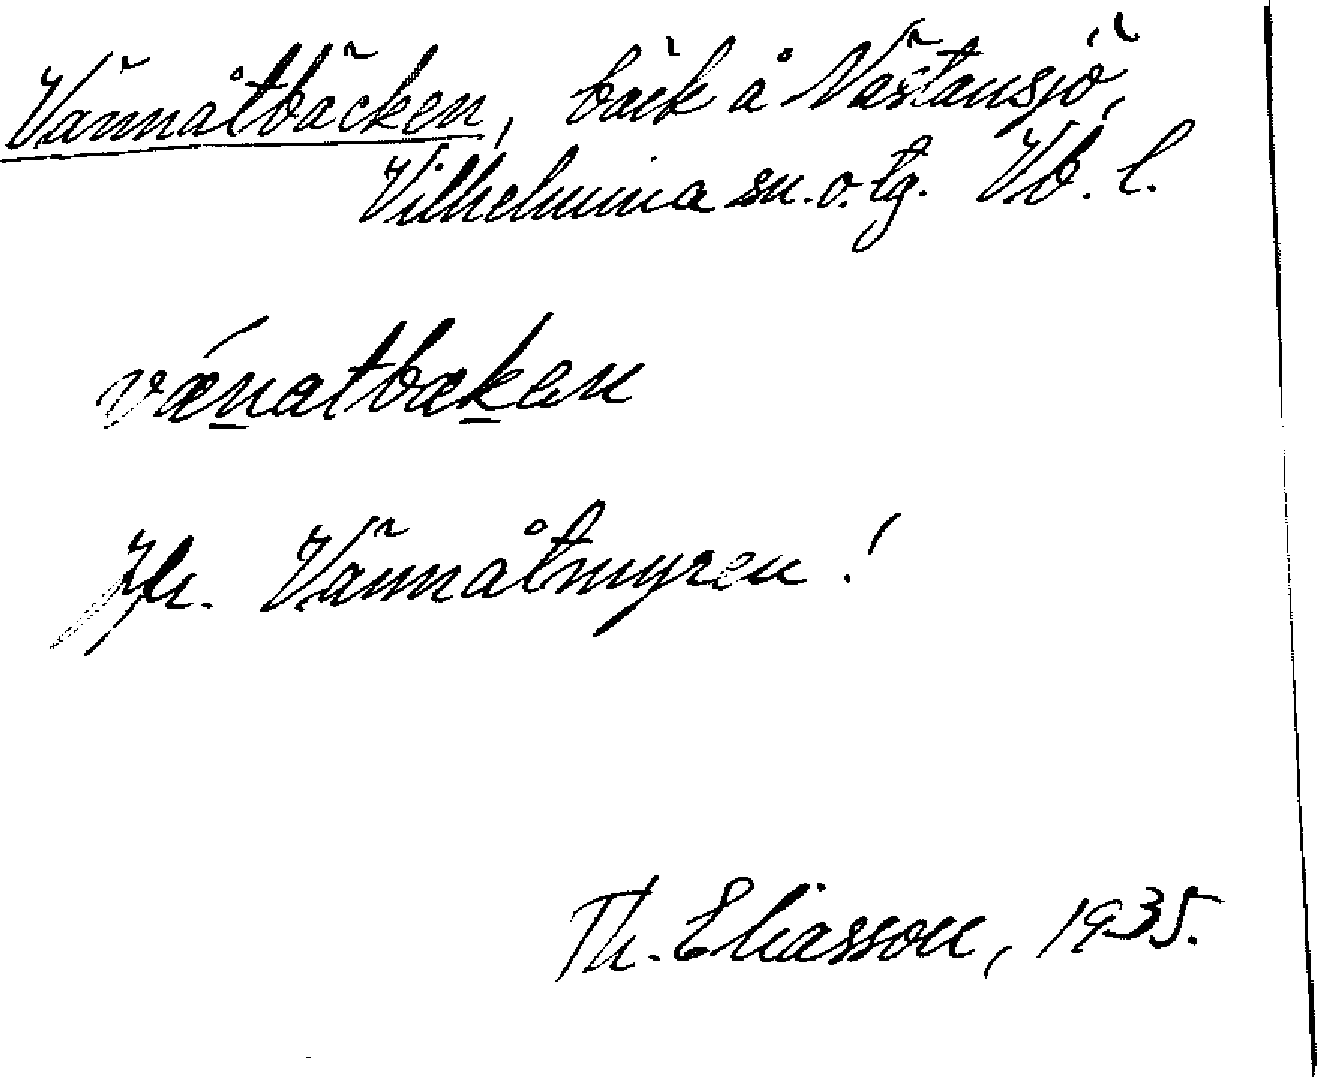 Vännåtbäcken, bäck å Västansjö,
Vilhelmina sn. o. tg. Vb. l.
vænatbækæn
Jfr. Vännåtmyren!
Th. Eliasson, 1935.